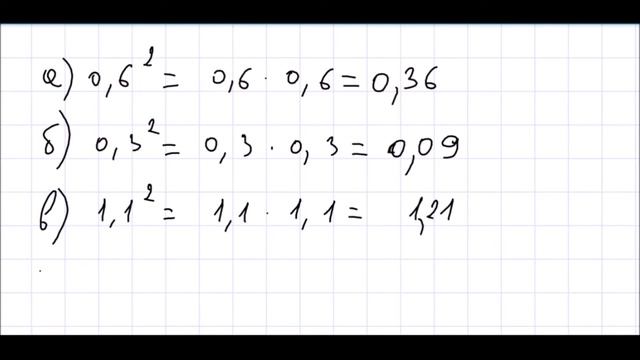 а) 0,6² = 0,6 · 0,6 = 0,36
б) 0,3² = 0,3 · 0,3 = 0,09
в) 1,1² = 1,1 · 1,1 = 1,21